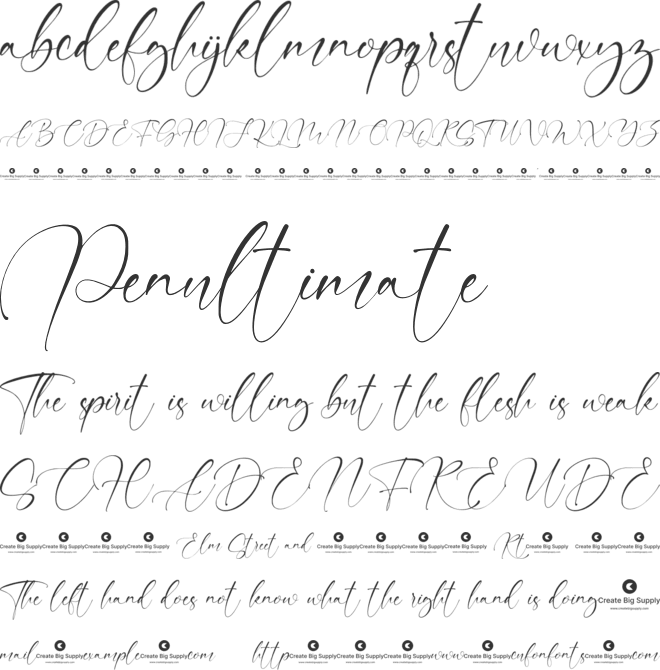 abcdefghijklmnopqrstuvwxyz
ABCDEFGHIJKLMNOPQRSTUVWXYZ
Penultimate
The spirit is willing but the flesh is weak
SCHADENFREUDE
Create Big Supply Create Big Supply Create Big Supply Create Big Supply Elm Street and Create Big Supply Create Big Supply Create Big Supply Create Big Supply Rt Create Big Supply Create Big Supply Create Big Supply
The left hand does not know what the right hand is doing Create Big Supply
mail Create Big Supply example Create Big Supply com http Create Big Supply Create Big Supply Create Big Supply www Create Big Supply cufonfonts Create Big Supply com